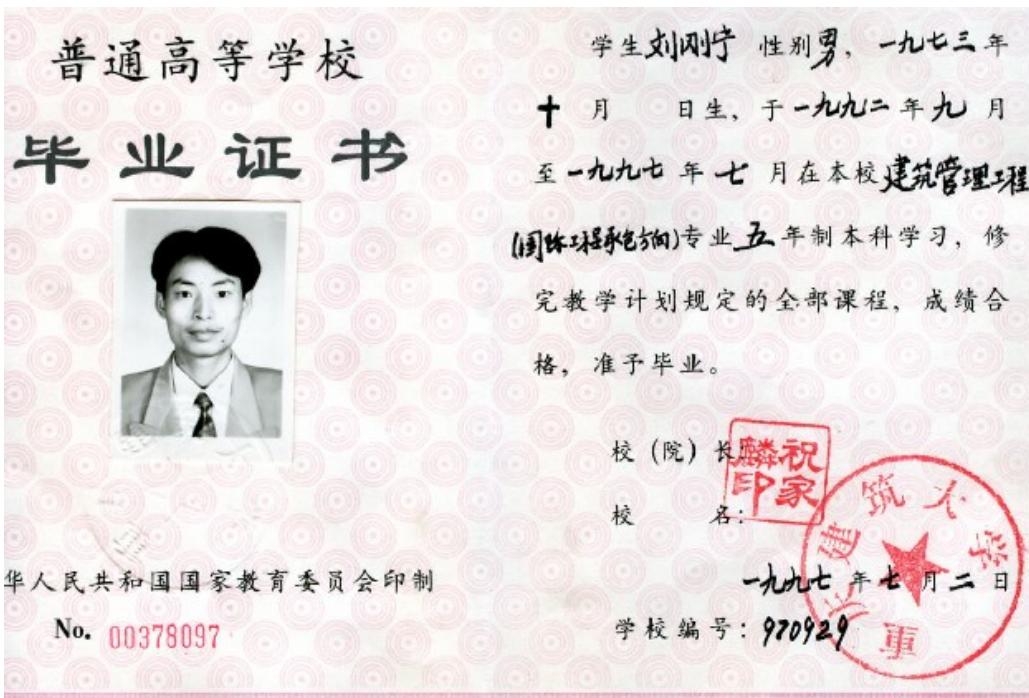 普通高等学校
毕业证书
华人民共和国国家教育委员会印制
No. 00378097
学生刘刚宁 性别男，一九七三年
十月 日生，于一九九二年九月
至一九九七年七月在本校建筑管理工程
(国际工程承包方向)专业五年制本科学习，修
完教学计划规定的全部课程，成绩合
格，准予毕业。
校（院）长：
祝家麟印
校 名：
重庆建筑大学
一九九七年七月二日
学校编号：970929